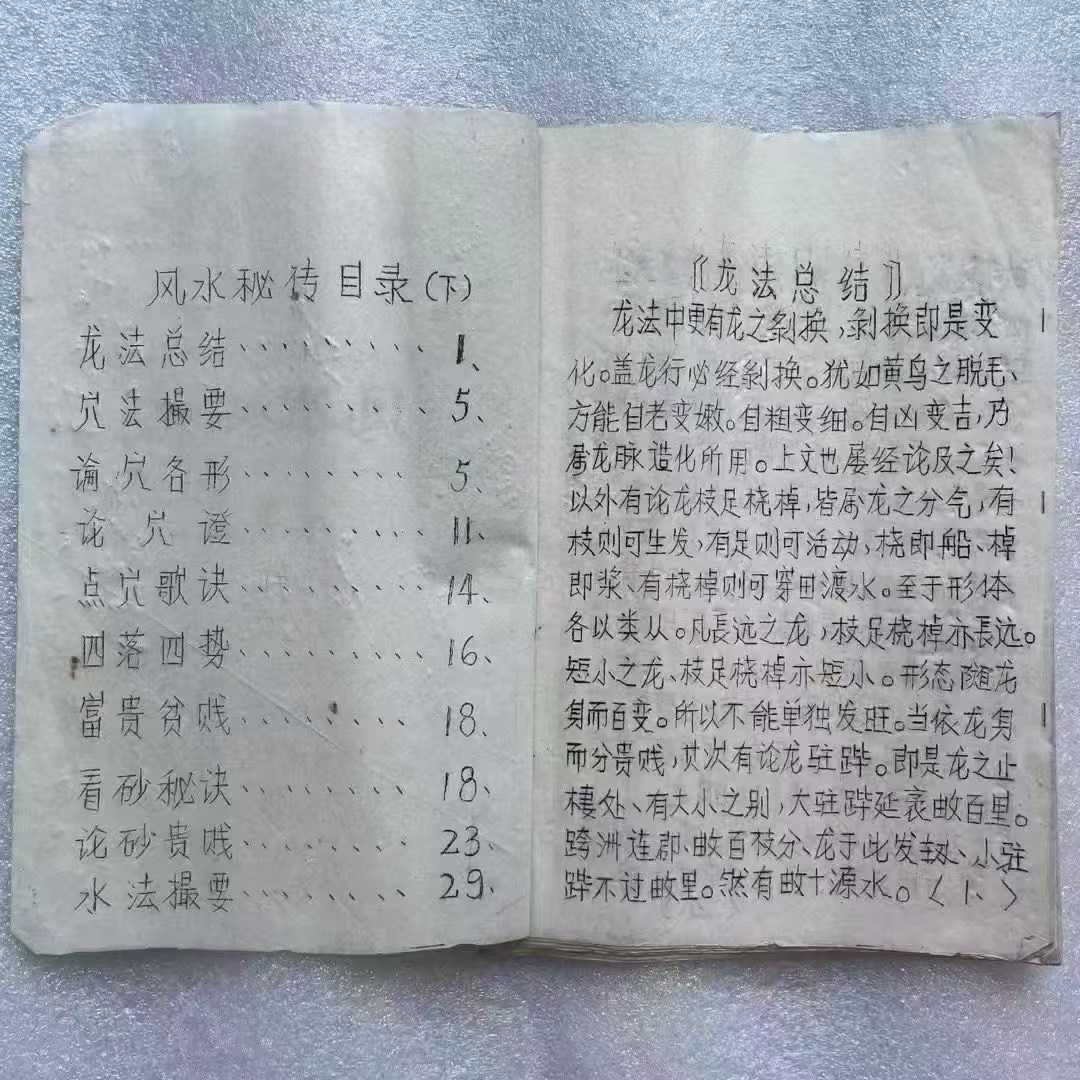 风水秘传目录(下)
龙法总结、、、、、、、、、1、
穴法撮要、、、、、、、、、5、
谕穴各形、、、、、、、、、5、
论穴證、、、、、、、、、11、
点穴歌诀、、、、、、、、、14、
四落四势、、、、、、、、、16、
富贵贫贱、、、、、、、、、18、
看砂秘诀、、、、、、、、、18、
论砂贵贱、、、、、、、、、23、
水法撮要、、、、、、、、、29、
《龙法总结》
龙法中更有龙之剝换,剝换即是变
化。盖龙行必经剝换。犹如黄鸟之脱毛、
方能自老变嫩。自粗变细。自凶变吉,乃
属龙脉造化所用。上文也屡经论及之矣!
以外有论龙枝足桡棹,皆属龙之分气,有
枝则可生发,有足则可活动,桡即船、棹
即桨、有桡棹则可穿田渡水。至于形体
各以类从。凡長远之龙,枝足桡棹亦長远。
短小之龙、枝足桡棹亦短小。形态随龙
身而百变。所以不能单独发旺。当依龙身
而分贵贱,其次有论龙驻跸。即是龙之止
棲处、有大小之别,大驻跸延袤数百里。
跨洲连郡、数百枝分、龙于此发
小驻
跸不过数里。然有数十源水。〈1、〉